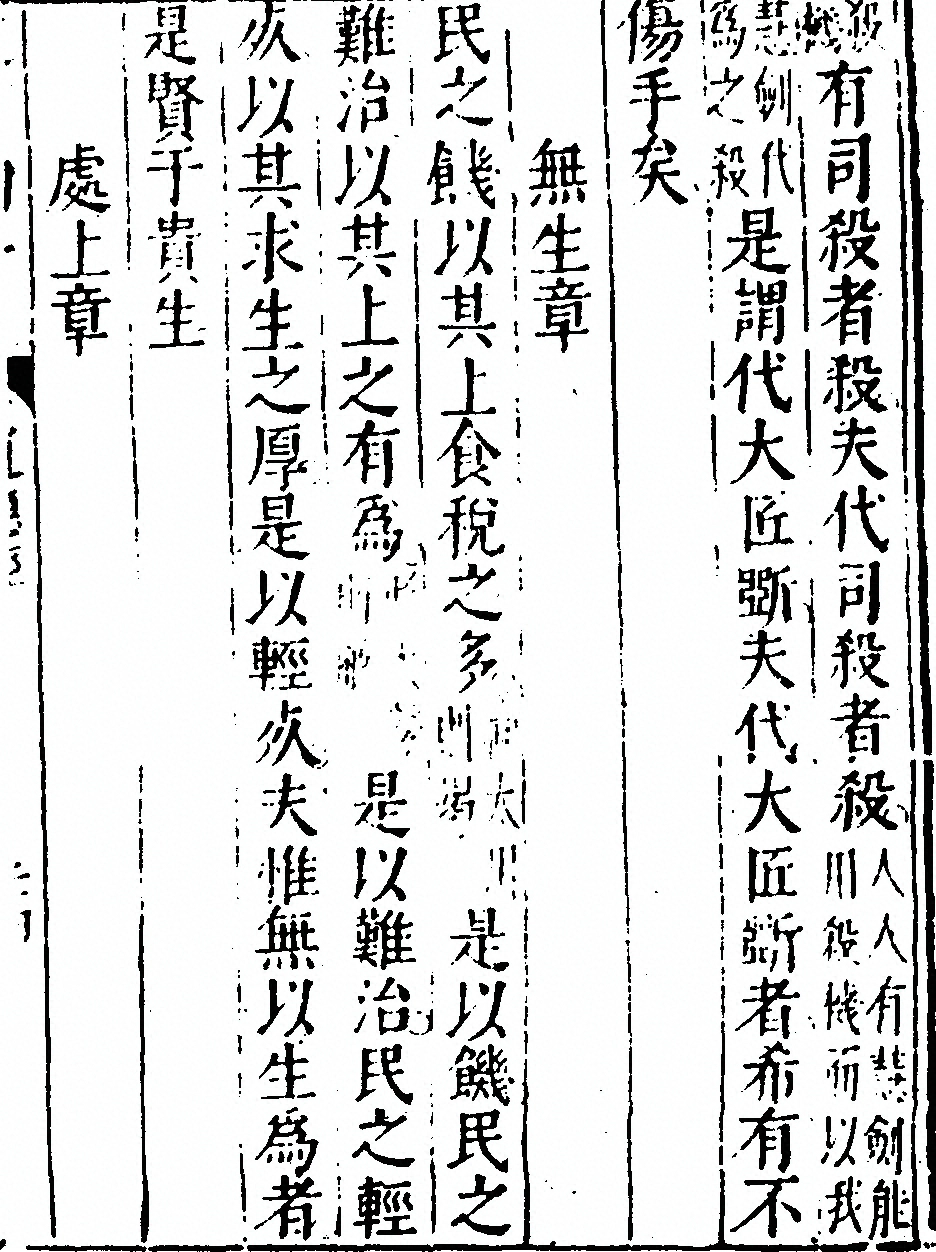 有司殺者殺夫代司殺者殺人人有慧劍能用殺機而以我
慧劍代為之殺是謂代大匠斲夫代大匠斲者希有不
傷手矣
無生章
民之饑以其上食稅之多是以饑民之
難治以其上之有為是以難治民之輕
死以其求生之厚是以輕死夫惟無以生為者
是賢于貴生
處上章